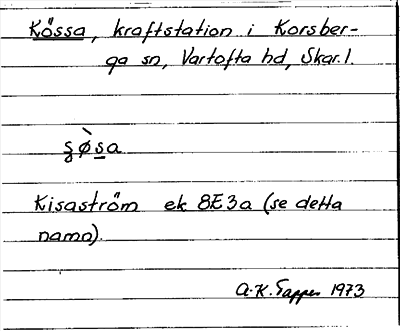 Kössa, kraftstation i Korsber-
ga sn, Vartofta hd, Skar. l.
ʂø̀sa
Kisaström ek 8E3a (se detta
namn).
A.K. Tapper 1973